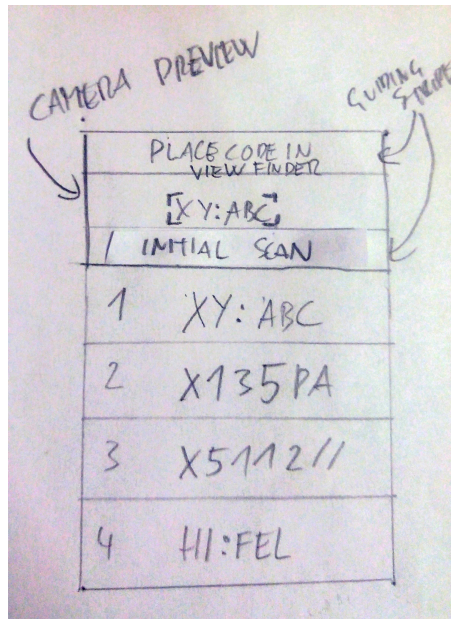 CAMERA PREVIEW
GUIDING
STRIPE
PLACE CODE IN
VIEW FINDER
[XY:ABC]
/ INITIAL SCAN
1 XY: ABC
2 X135PA
3 X5112//
4 HI:FEL